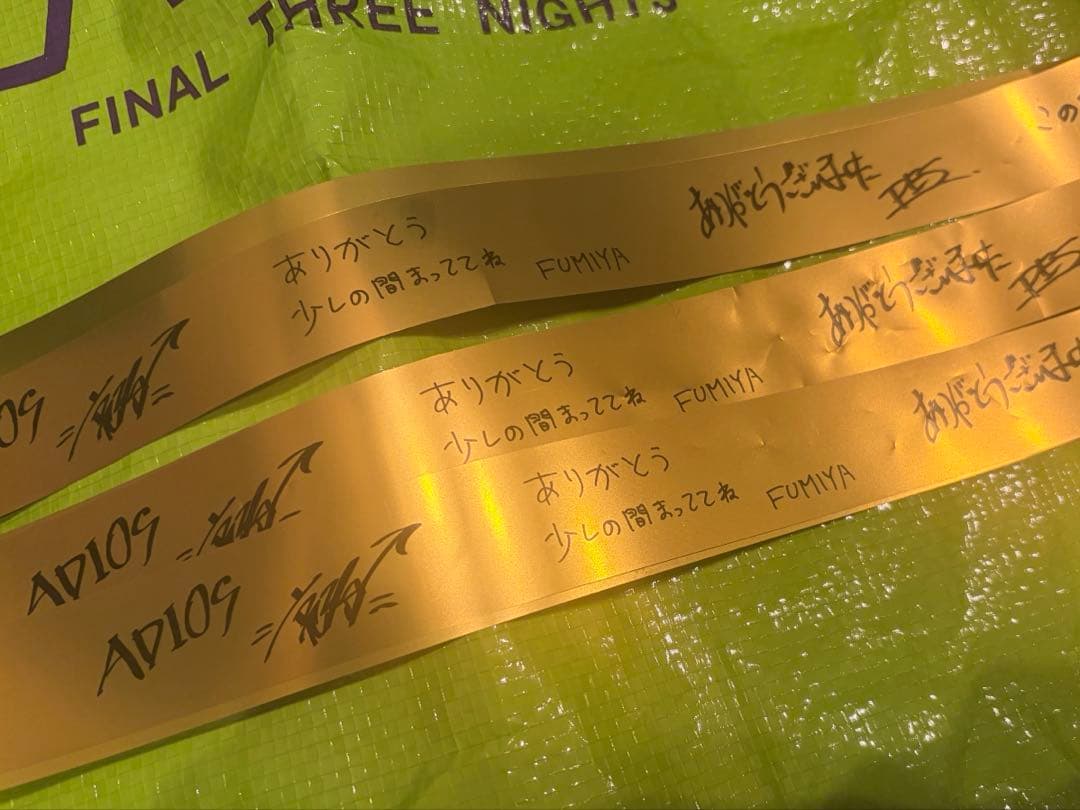 THREE NIGHTS
FINAL
この
ありがとう
少しの間まっててね FUMIYA
ありがとうございました
PES
OS
ありがとう
少しの間まっててね FUMIYA
ありがとうございました
PES
ADIOS
ありがとう
少しの間まっててね FUMIYA
ありがとうございました
ADIOS